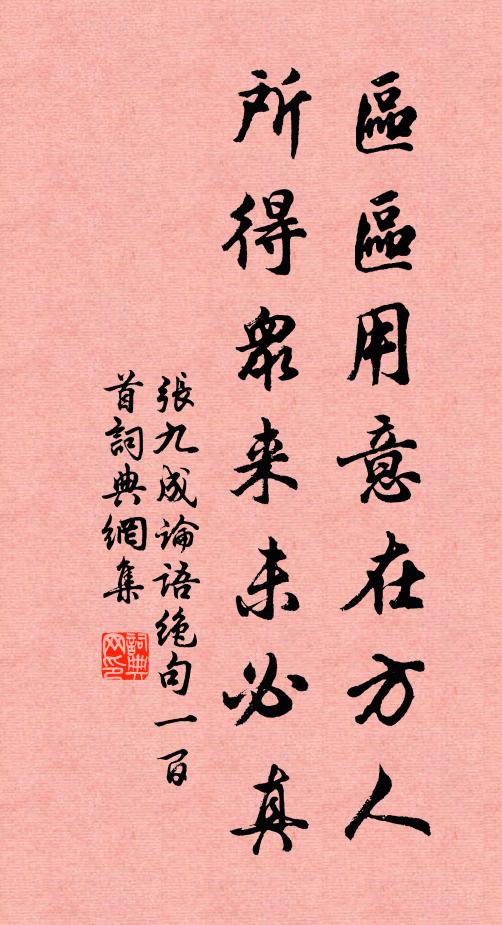 區區用意在方人
所得眾来未必真
張九成論語絶句一百
首詞典網集
詞典网印